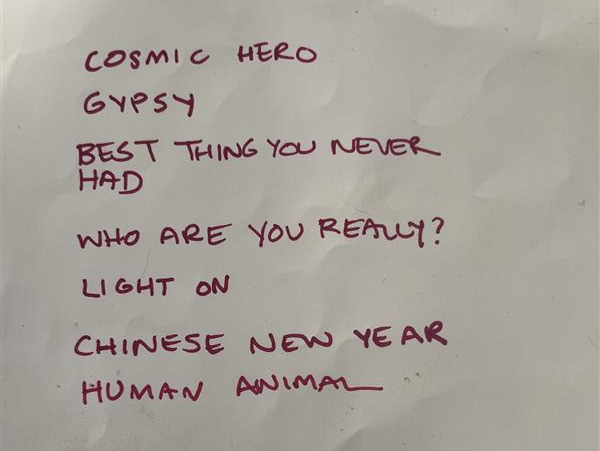 COSMIC HERO
GYPSY
BEST THING YOU NEVER
HAD
WHO ARE YOU REALLY?
LIGHT ON
CHINESE NEW YEAR
HUMAN ANIMAL